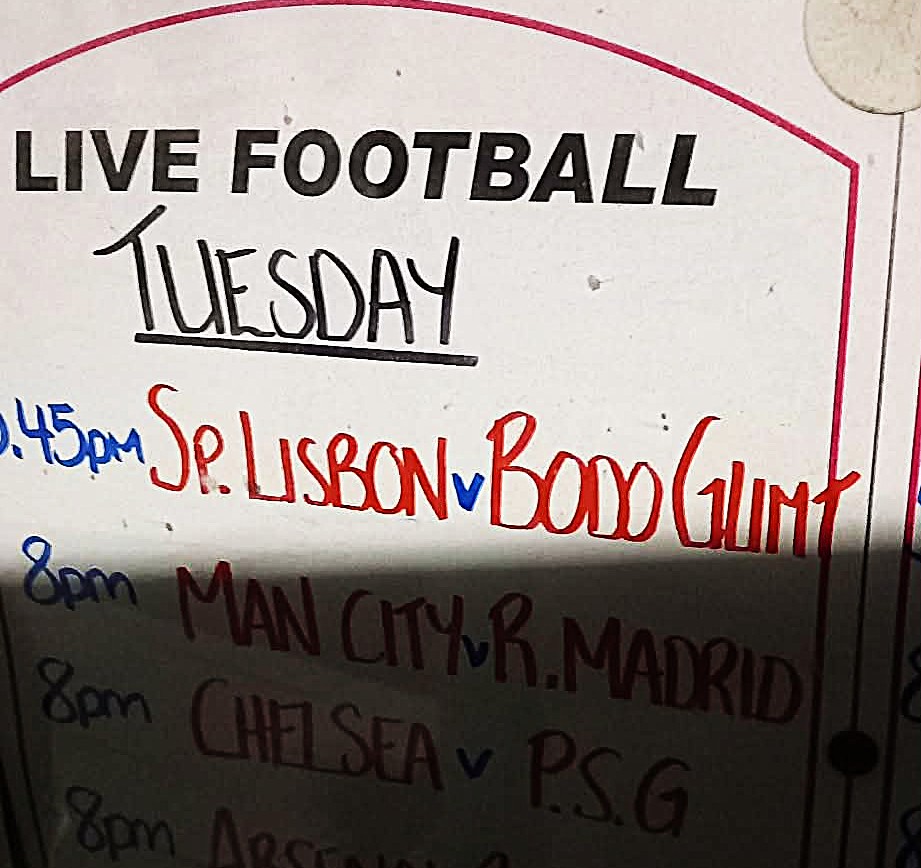 LIVE FOOTBALL
TUESDAY
.45pm Sp. LISBON v BODO GLIMT
8pm MAN CITY v R. MADRID
8pm CHELSEA v P.S.G
8pm ARSENAL